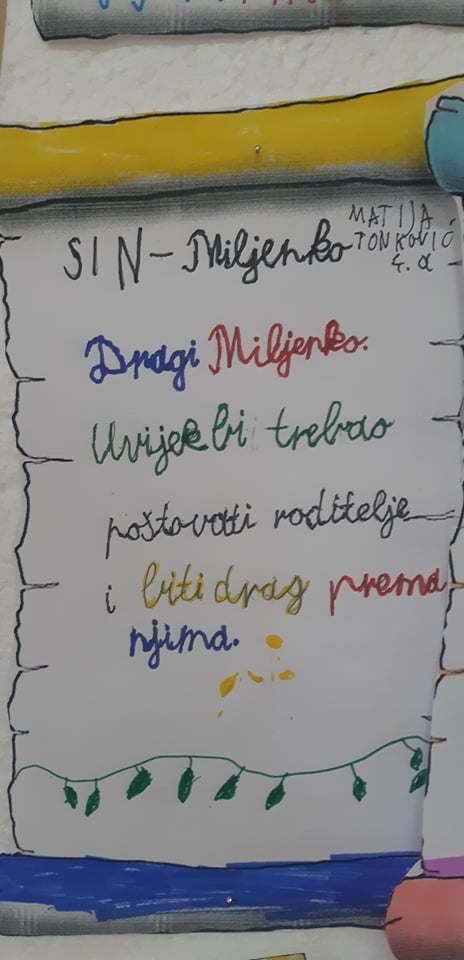 SIN - Miljenko
MATIJA
TONKOVIĆ
4. a
Dragi Miljenko.
Uvijek bi trebao
poštovati roditelje
i biti drag prema
njima.